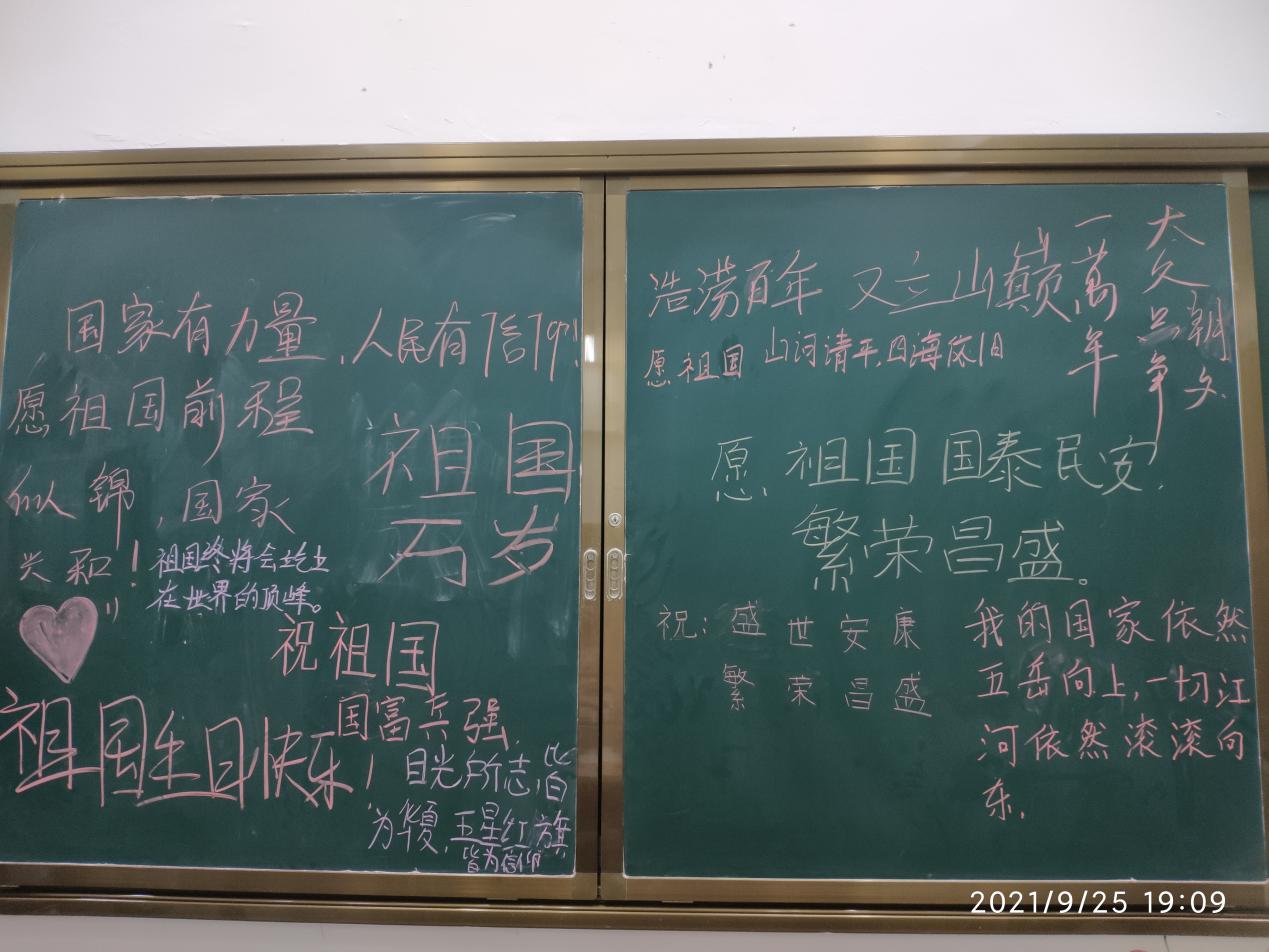 国家有力量,人民有信仰!
愿祖国前程
似锦,国家
兴和!
祖国终将会屹立
在世界的顶峰。
祖国
万岁
祝祖国
国富兵强
祖国生日快乐!
目光所志,皆
为华夏,五星红旗
皆为信仰
浩涝百年 又立山巅
一萬年
太久
争朝
夕
愿祖国 山河清平,四海依旧
愿祖国国泰民安,
繁荣昌盛。
祝:盛世安康
繁荣昌盛
我的国家依然
五岳向上,一切江
河依然滚滚向
东,
2021/9/25 19:09